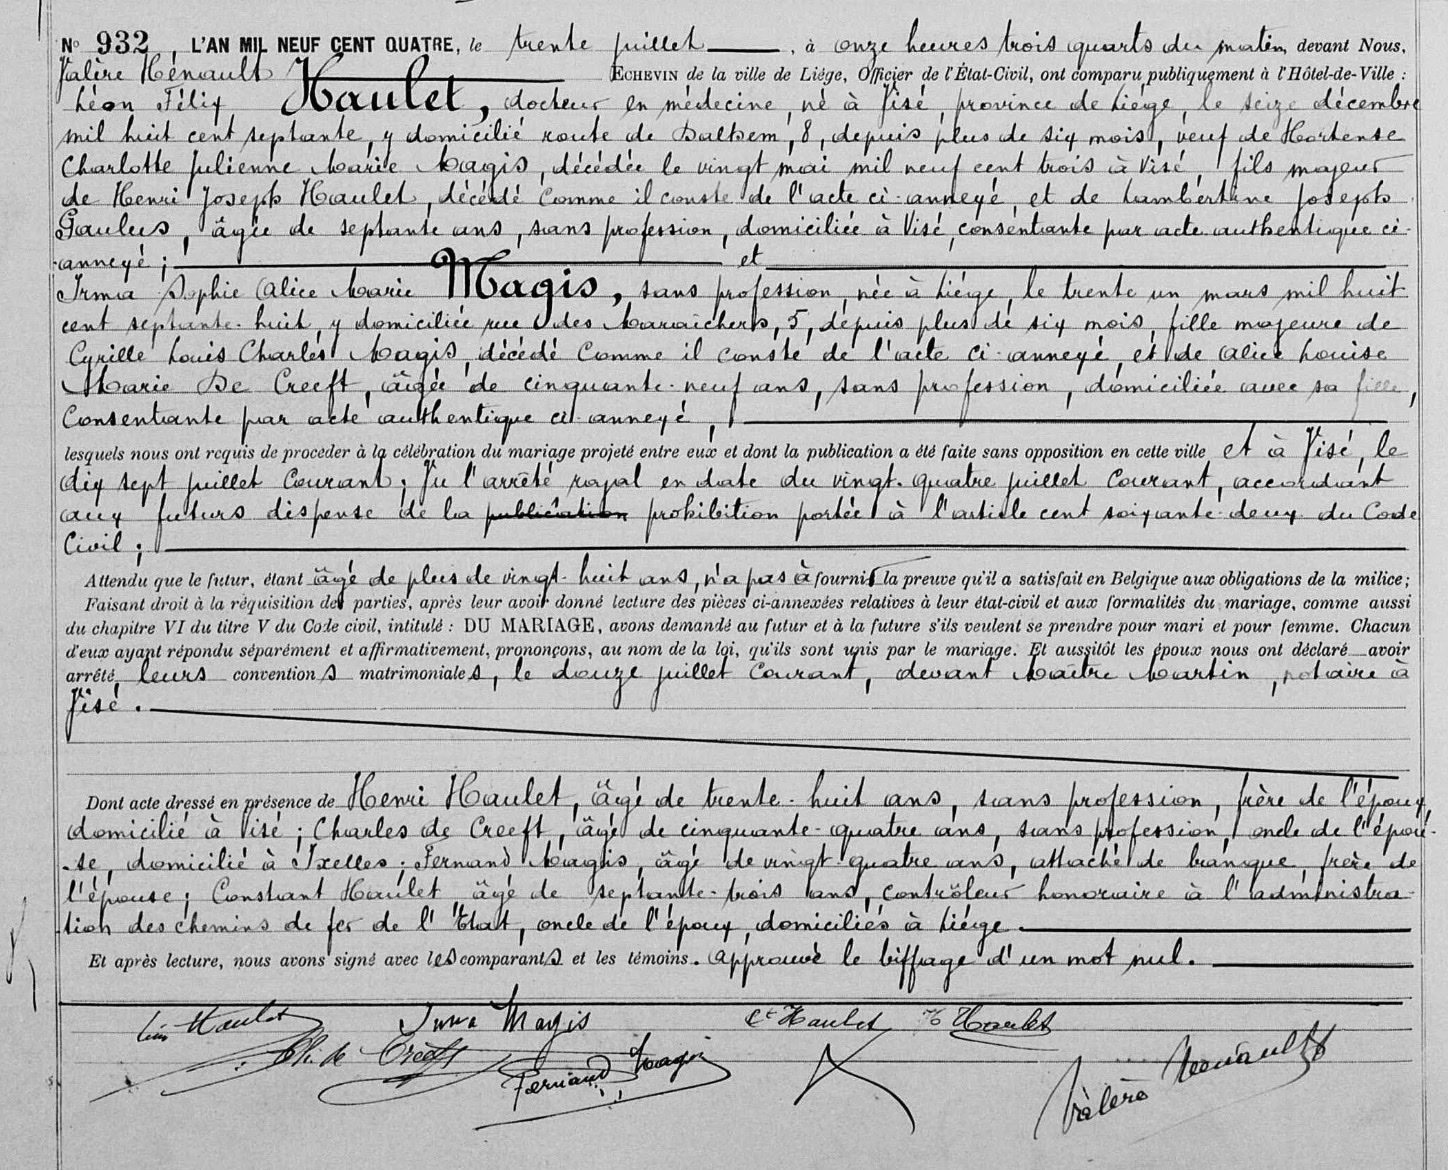 N° 932, L'AN MIL NEUF CENT QUATRE, le trente juillet, à onze heures trois quarts du matin, devant Nous,
Valère Hénault ECHEVIN de la ville de Liége, Officier de l'État-Civil, ont comparu publiquement à l'Hôtel-de-Ville :
Léon Félix Haulet, docteur en médecine, né à Visé, province de Liége, le seize décembre
mil huit cent septante, y domicilié route de Dalhem, 8, depuis plus de six mois, veuf de Hortense
Charlotte Julienne Marie Magis, décédée le vingt mai mil neuf cent trois à Visé, fils majeur
de Henri Joseph Haulet, décédé comme il conste de l'acte ci-annexé, et de Lambertine Joseph
Gaulees, âgée de septante ans, sans profession, domiciliée à Visé, consentante par acte authentique ci-
annexé ; et
Irma Sophie Alice Marie Magis, sans profession, née à Liége, le trente un mars mil huit
cent septante-huit, y domiciliée rue des Maraîchers, 5, depuis plus de six mois, fille majeure de
Cyrille Louis Charles Magis, décédé comme il conste de l'acte ci-annexé, et de Alice Louise
Marie De Creeft, âgée de cinquante-neuf ans, sans profession, domiciliée avec sa fille,
Consentante par acte authentique ci-annexé,
lesquels nous ont requis de procéder à la célébration du mariage projeté entre eux et dont la publication a été faite sans opposition en cette ville et à Visé, le
dix sept juillet Courant ; Vu l'arrêté royal en date du vingt-quatre juillet Courant, accordant
aux futurs dispense de la publication prohibition portée à l'article cent soixante-deux du Code
Civil ;
Attendu que le futur, étant âgé de plus de vingt-huit ans, n'a pas à fournir la preuve qu'il a satisfait en Belgique aux obligations de la milice ;
Faisant droit à la réquisition des parties, après leur avoir donné lecture des pièces ci-annexées relatives à leur état-civil et aux formalités du mariage, comme aussi
du chapitre VI du titre V du Code civil, intitulé : DU MARIAGE, avons demandé au futur et à la future s'ils veulent se prendre pour mari et pour femme. Chacun
d'eux ayant répondu séparément et affirmativement, prononçons, au nom de la loi, qu'ils sont unis par le mariage. Et aussitôt les époux nous ont déclaré avoir
arrêté leurs conventions matrimoniales, le douze juillet Courant, devant Maître Martin, notaire à
Visé.
Dont acte dressé en présence de Henri Haulet, âgé de trente-huit ans, sans profession, frère de l'époux,
domicilié à Visé ; Charles de Creeft, âgé de cinquante-quatre ans, sans profession, oncle de l'épou-
-se, domicilié à Ixelles ; Fernand Magis, âgé de vingt-quatre ans, attaché de banque, frère de
l'épouse ; Constant Haulet, âgé de septante-trois ans, contrôleur honoraire à l'administra-
tion des chemins de fer de l'Etat, oncle de l'époux, domiciliés à Liége.
Et après lecture, nous avons signé avec les comparants et les témoins. Approuvé le biffage d'un mot nul.
Léon Haulet Irma Magis Ct Haulet H Haulet
Ch. de Creeft Fernand Magis Valère Hénault